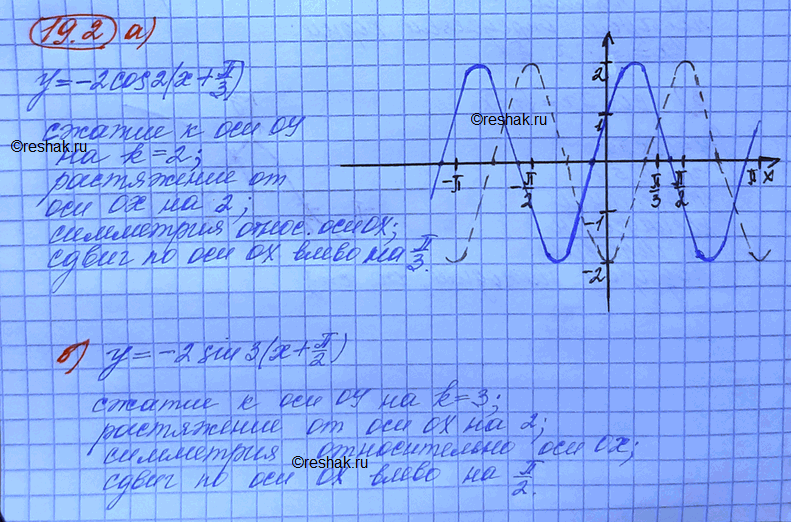 19.2 а)
y=-2cos2(x+π/3)
сжатие к оси ОУ
на k=2;
растяжение от
оси ОХ на 2;
симметрия относ. оси ОХ;
сдвиг по оси ОХ влево на π/3.
©reshak.ru
2
©reshak.ru
1
-π
-π/2
π/3
π/2
π
x
-1
-2
б) y=-2sin3(x+π/2)
сжатие к оси ОУ на k=3;
растяжение от оси ОХ на 2;
симметрия относительно оси ОХ;
©reshak.ru
сдвиг по оси ОХ влево на π/2.